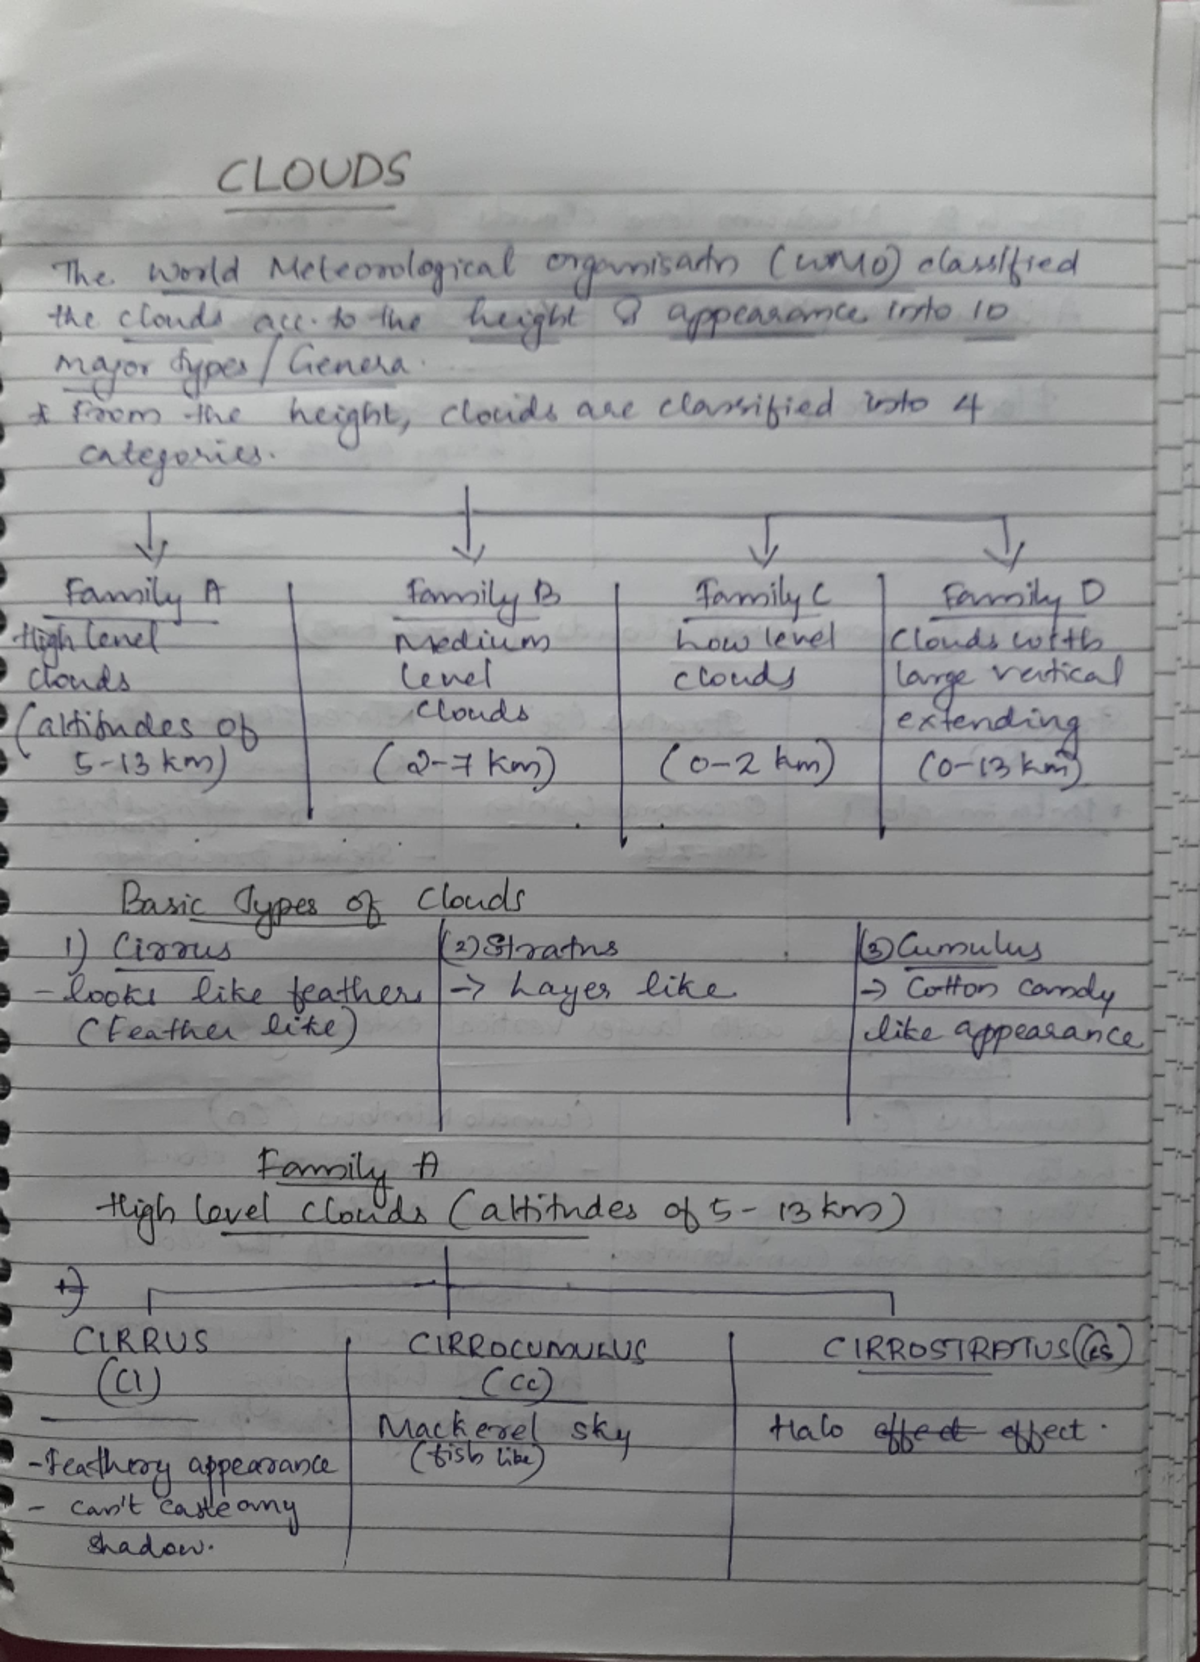 CLOUDS
The World Meteorological organisatn (WMO) classified
the clouds acc. to the height & appearance into 10
major types/Genera.
* From the height, clouds are classified into 4
categories.
Family A
High level
clouds
(altitudes of
5-13 km)
Family B
Medium
level
clouds
(2-7 km)
Family C
Low level
clouds
(0-2 km)
Family D
Clouds with
large vertical
extending
(0-13 km)
Basic Types of Clouds
1) Cirrus
- looks like feathers
(Feather like)
(2) Stratus
→ Layer like
(3) Cumulus
→ Cotton candy
like appearance
Family A
High level clouds (altitudes of 5-13 km)
CIRRUS
(CI)
- Feathery appearance
- can't caste any
shadow.
CIRROCUMULUS
(Cc)
Mackerel sky
(fish like)
CIRROSTRATUS (Cs)
Halo effect effect.